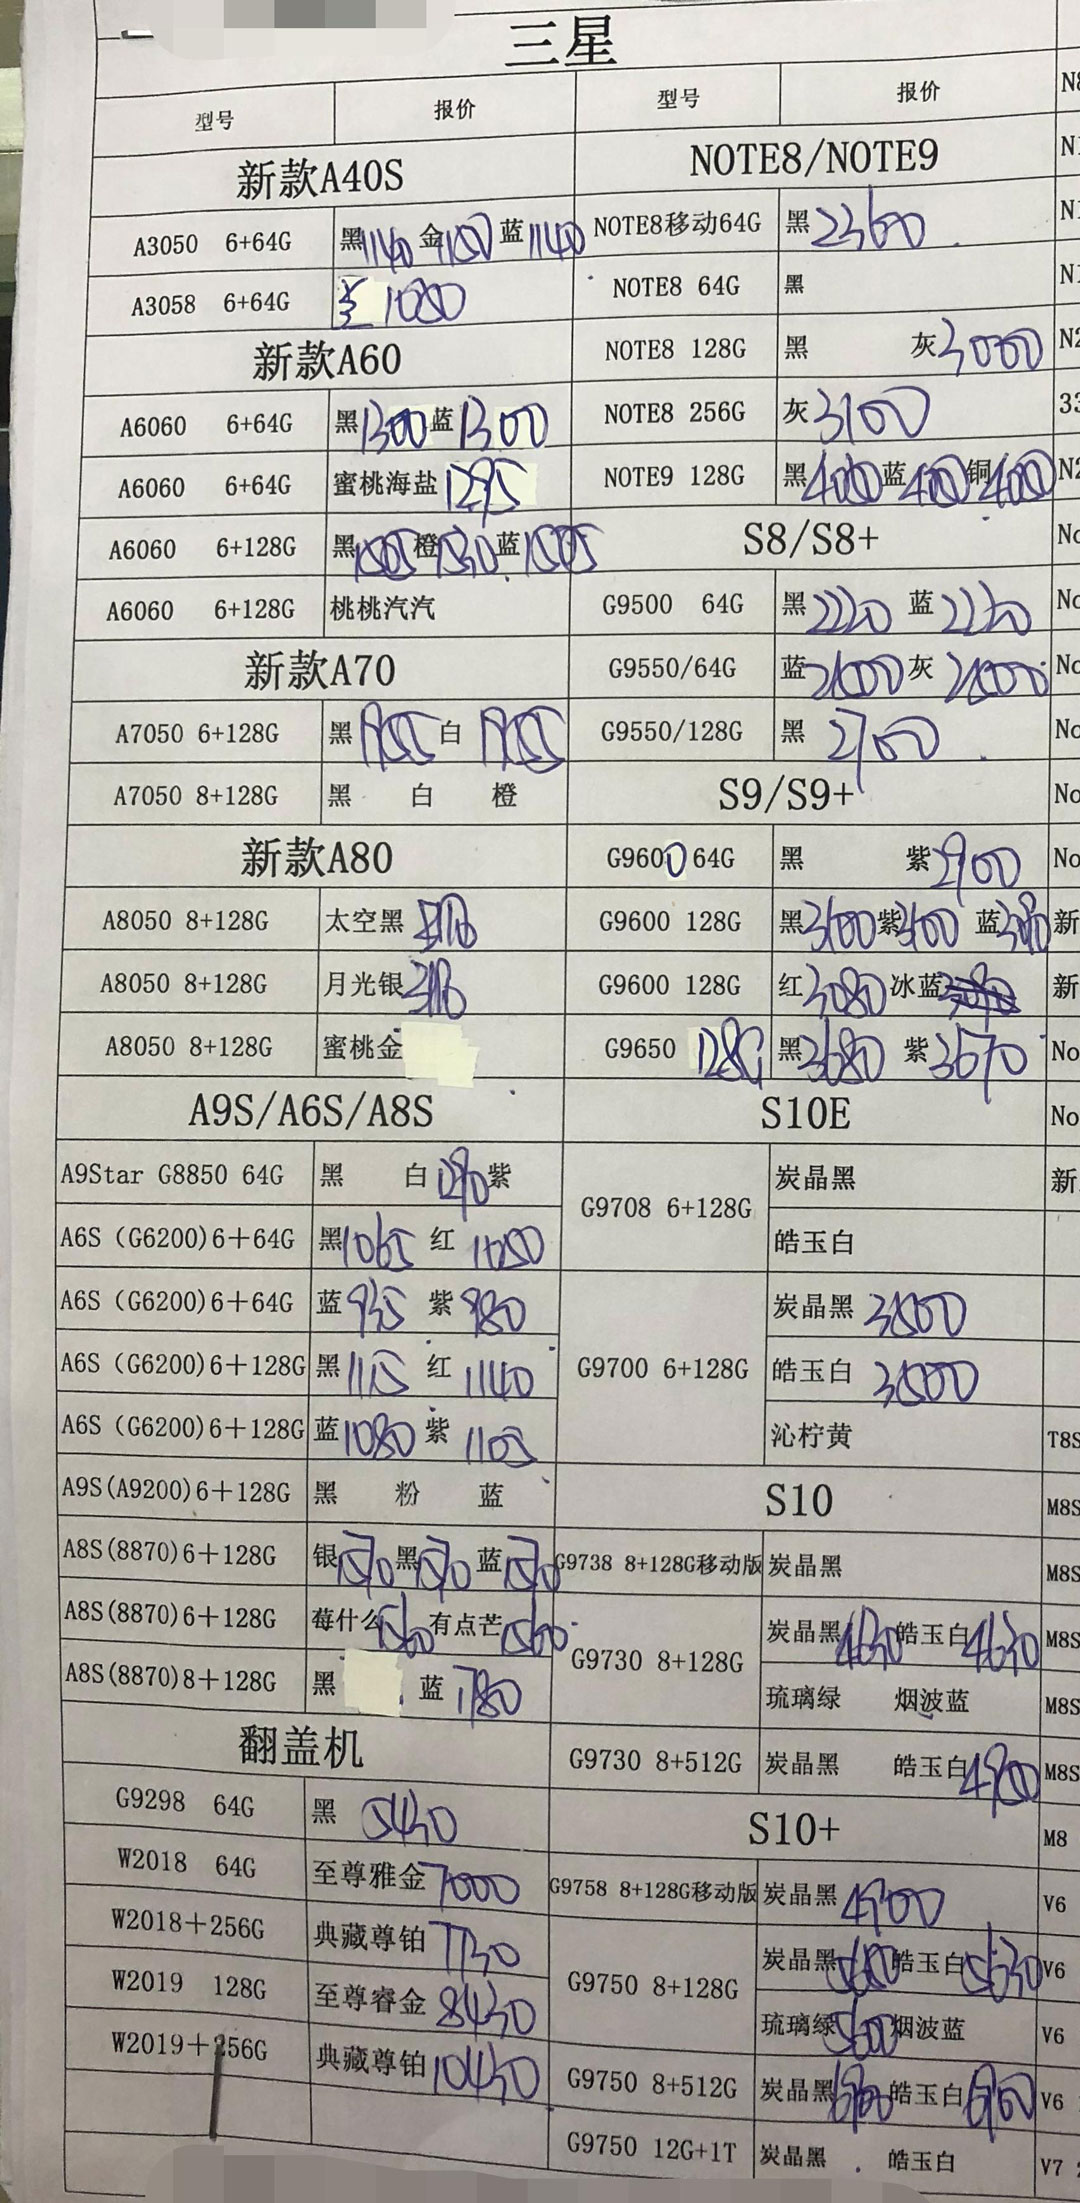 三星
型号 报价 型号 报价
新款A40S
A3050 6+64G 黑1140 金1150 蓝1140
A3058 6+64G 1080
新款A60
A6060 6+64G 黑1300 蓝1300
A6060 6+64G 蜜桃海盐 1295
A6060 6+128G 黑1505 橙1530 蓝1505
A6060 6+128G 桃桃汽汽
新款A70
A7050 6+128G 黑 白
A7050 8+128G 黑 白 橙
新款A80
A8050 8+128G 太空黑
A8050 8+128G 月光银
A8050 8+128G 蜜桃金
A9S/A6S/A8S
A9Star G8850 64G 黑 白1290 紫
A6S (G6200)6+64G 黑1065 红 1050
A6S (G6200)6+64G 蓝935 紫980
A6S (G6200)6+128G 黑1115 红 1140
A6S (G6200)6+128G 蓝1080 紫 1105
A9S(A9200)6+128G 黑 粉 蓝
A8S(8870)6+128G 银1570 黑1570 蓝1570
A8S(8870)6+128G 莓什么1560 有点芒1560
A8S(8870)8+128G 黑 蓝1780
翻盖机
G9298 64G 黑 5430
W2018 64G 至尊雅金7000
W2018+256G 典藏尊铂 7730
W2019 128G 至尊睿金 8430
W2019+256G 典藏尊铂 10430
NOTE8/NOTE9
NOTE8移动64G 黑2360
NOTE8 64G 黑
NOTE8 128G 黑 灰3000
NOTE8 256G 灰3100
NOTE9 128G 黑 蓝 铜
S8/S8+
G9500 64G 黑2220 蓝2220
G9550/64G 蓝 灰
G9550/128G 黑 2700
S9/S9+
G9600 64G 黑 紫2900
G9600 128G 黑3100 紫3100 蓝
G9600 128G 红3080 冰蓝
G9650 128G 黑3680 紫3670
S10E
G9708 6+128G 炭晶黑
皓玉白
G9700 6+128G 炭晶黑 3500
皓玉白 3500
沁柠黄
S10
G9738 8+128G移动版 炭晶黑
G9730 8+128G 炭晶黑4630 皓玉白4630
琉璃绿 烟波蓝
G9730 8+512G 炭晶黑 皓玉白
S10+
G9758 8+128G移动版 炭晶黑 4900
G9750 8+128G 炭晶黑 皓玉白5630
琉璃绿5600 烟波蓝
G9750 8+512G 炭晶黑 皓玉白6900
G9750 12G+1T 炭晶黑 皓玉白
N8
N1
N1
N1
N2
33
N2
No
No
No
No
No
No
新
新
No
No
新
T8S
M8S
M8S
M8S
M8S
M8S
M8
V6
V6
V6
V6
V7